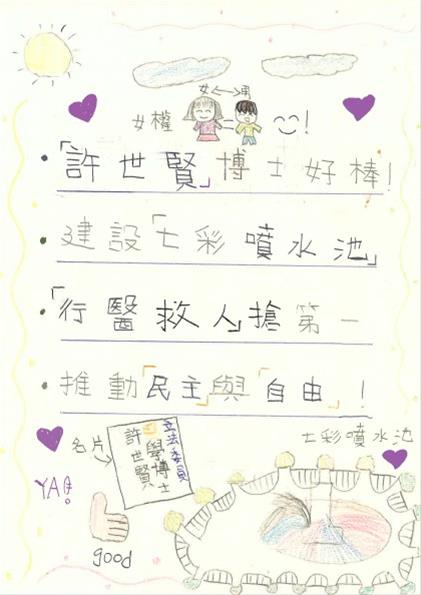 女↔男
女權 = !
•「許世賢」博士好棒!
•建設「七彩噴水池」
•「行醫救人」搶第一
•推動「民主」與「自由」!
名片
立法委員
醫學博士
許世賢
七彩噴水池
YA!
good